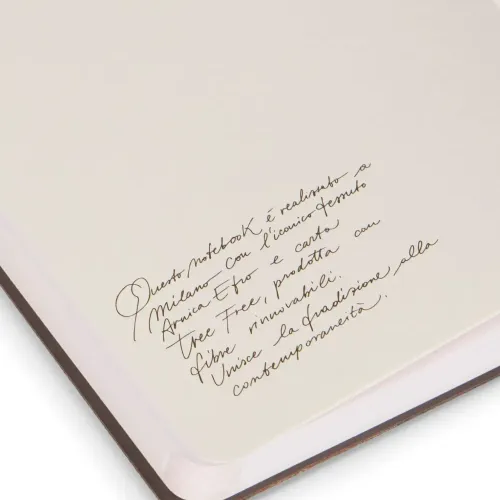 Questo notebook è realizzato a
Milano con l'iconico tessuto
Arnica Efio e carta
Tree Free, prodotta con
fibre rinnovabili.
Unisce la tradizione alla
contemporaneità.